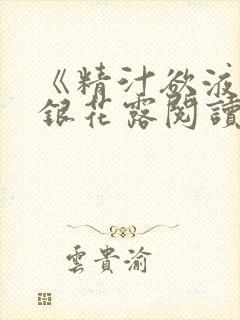 《精汁欲液
銀花露閱讀
雲貴渝